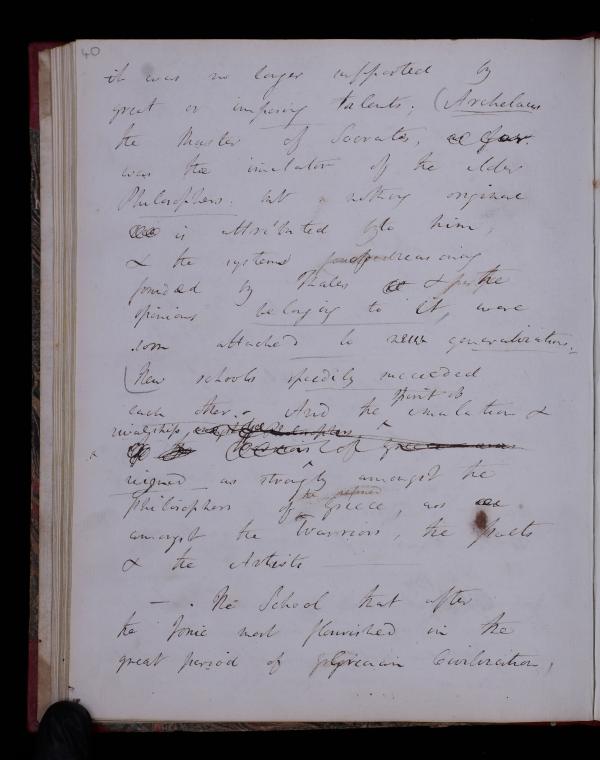 40
it was no longer supported by
great or imposing talents; (Archelaus
the Master of Socrates,
was the imitator of the elder
Philosophers. but nothing original
is attributed to him,
& the systems of reasoning
founded by Thales & the
opinions belonging to it, were
soon attached to new generalizations._
(New schools speedily succeeded
each other. - And the spirit of emulation &
rivalship
reigned as strongly amongst the
Philosophers of the refined Greece, as
amongst the Warriors, the Poets
& the Artists
— . The School that after
the Ionic most flourished in the
great period of Grecian Civilization,